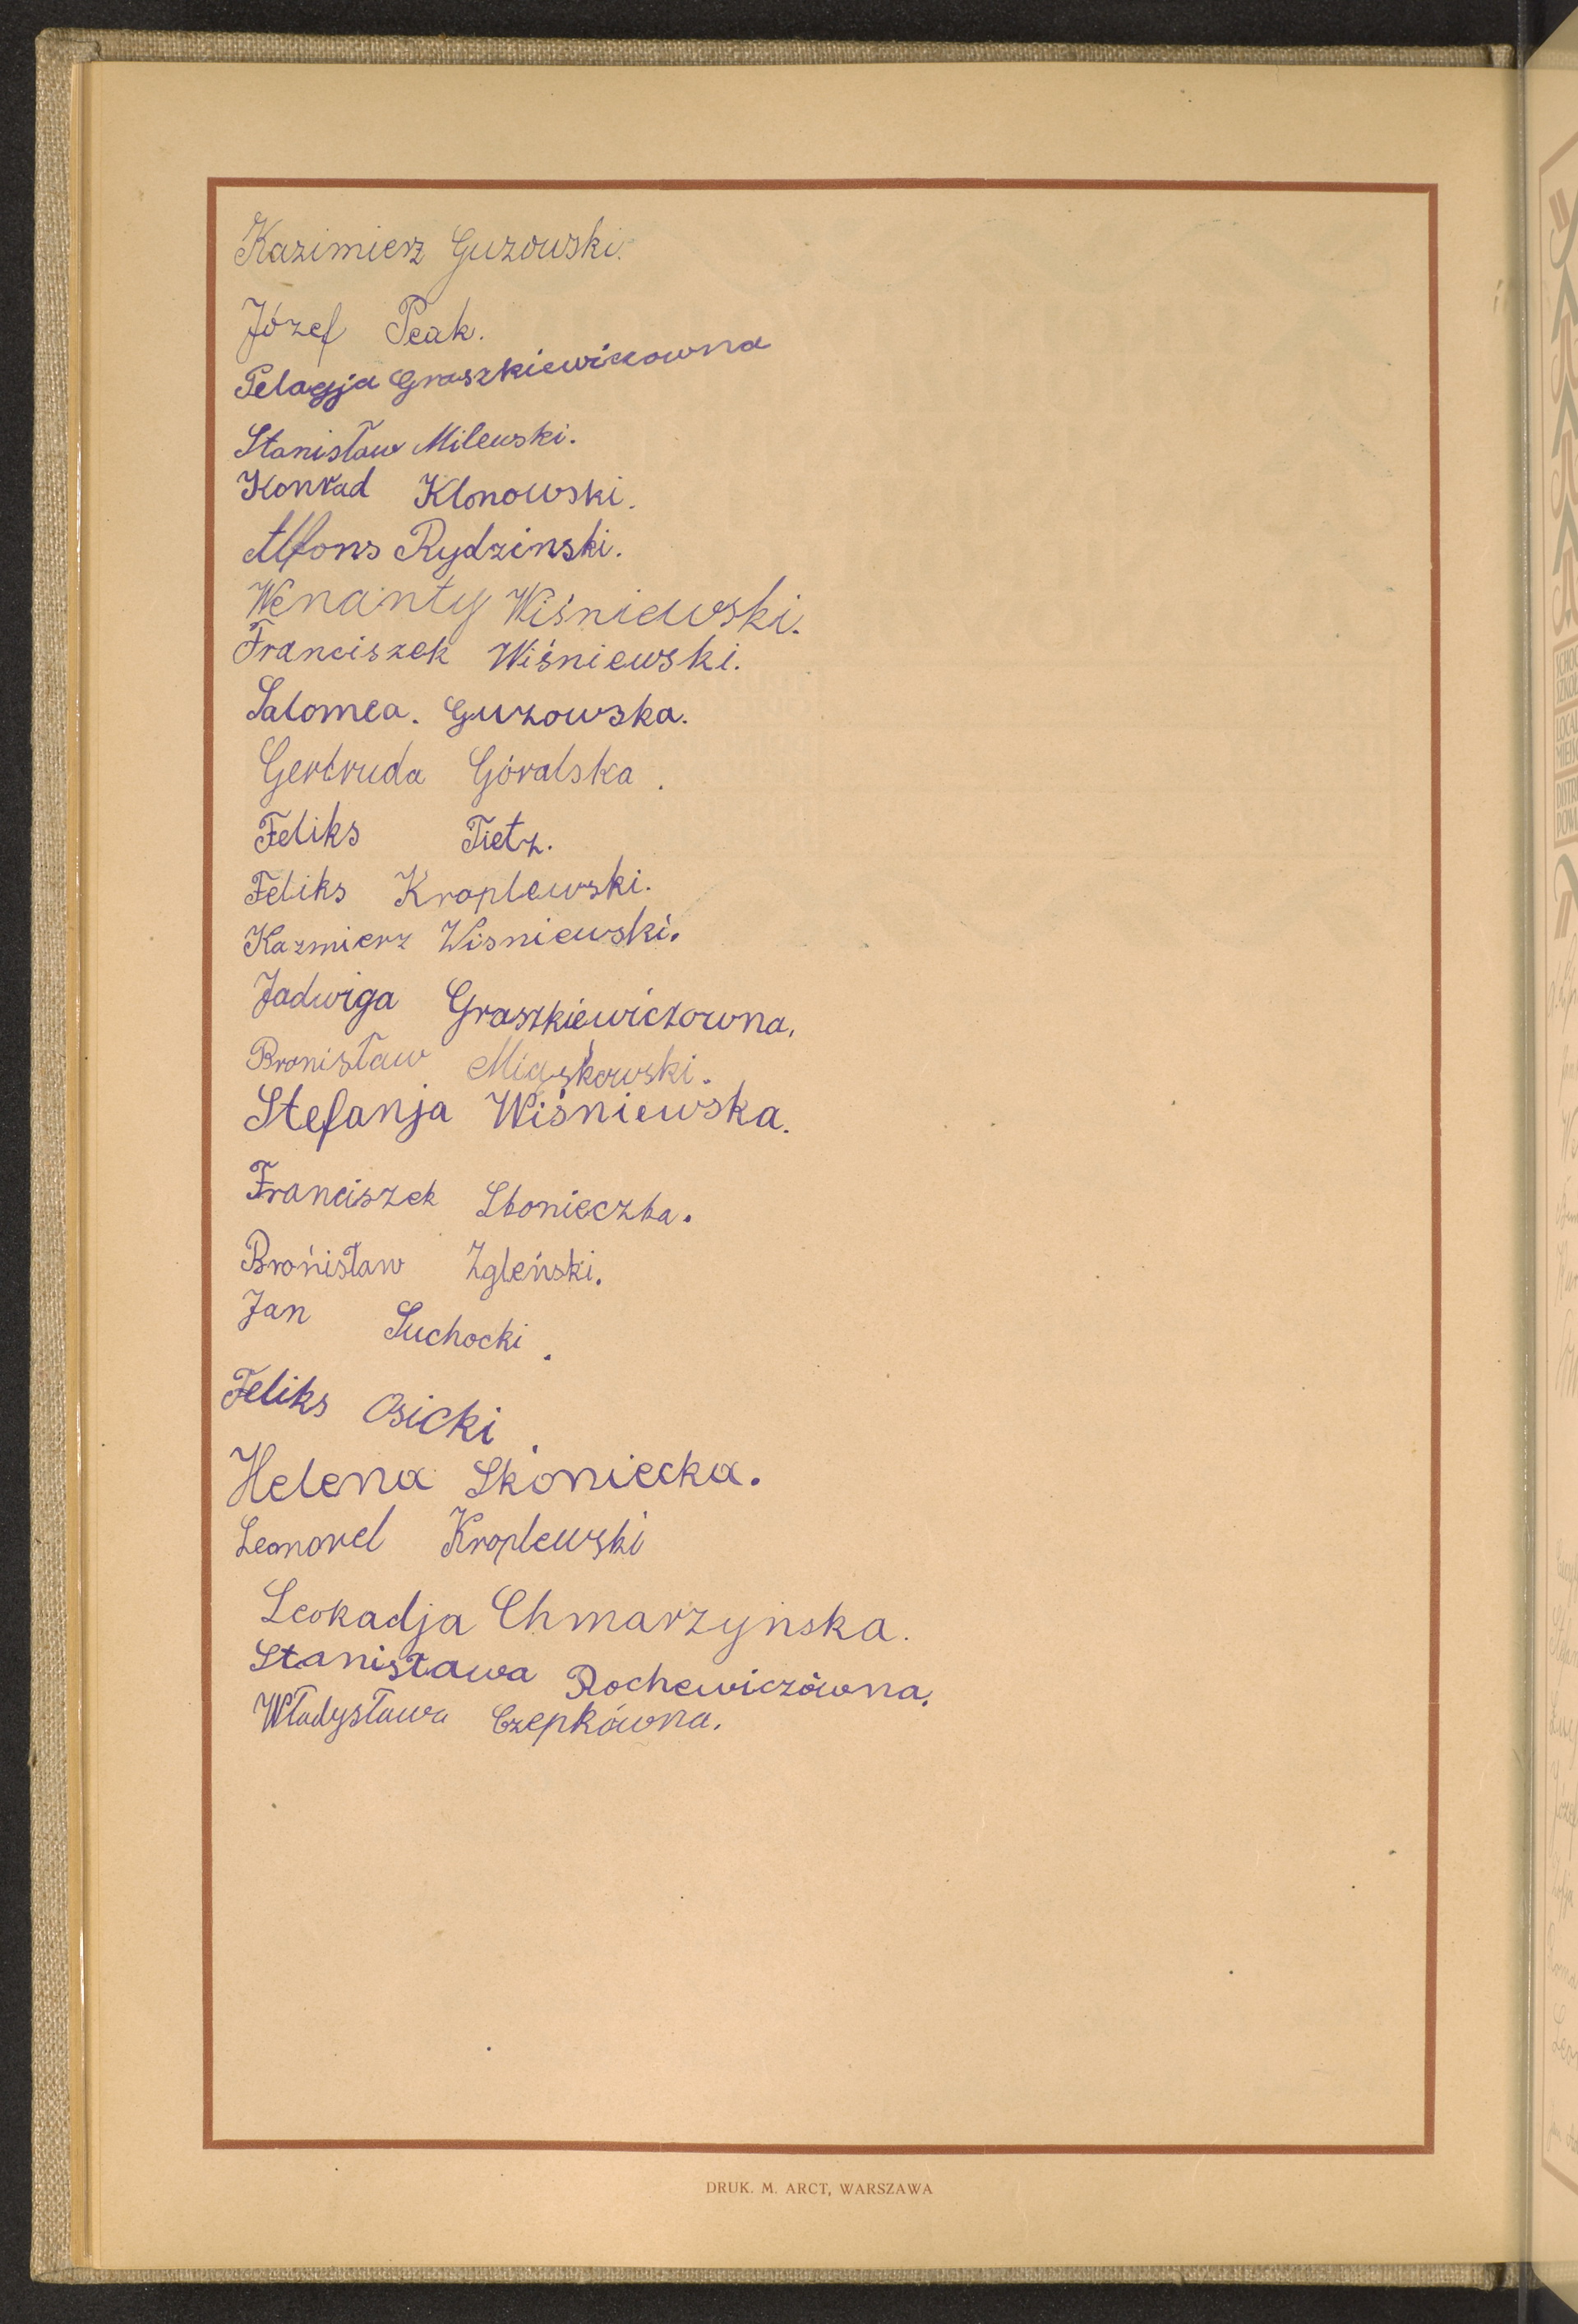 Kazimierz Guzowski.
Józef Peak.
Pelagja Graszkiewiczowna
Stanisław Milewski.
Konrad Klonowski.
Alfons Rydzinski.
Wenanty Wiśniewski.
Franciszek Wiśniewski.
Salomea. Guzowska.
Gertruda Góralska.
Feliks Tietz.
Feliks Kroplewski.
Kazmierz Wisniewski.
Jadwiga Graszkiewiczowna.
Bronisław Miąskowski.
Stefanja Wiśniewska.
Franciszek
Brónisław Zgleński.
Jan Suchocki.
Feliks Osicki.
Helena Skoniecka.
Kroplewski
Leokadja Chmarzynska.
Stanisława Rochewiczówna.
Władysława Czepkówna.
DRUK. M. ARCT, WARSZAWA